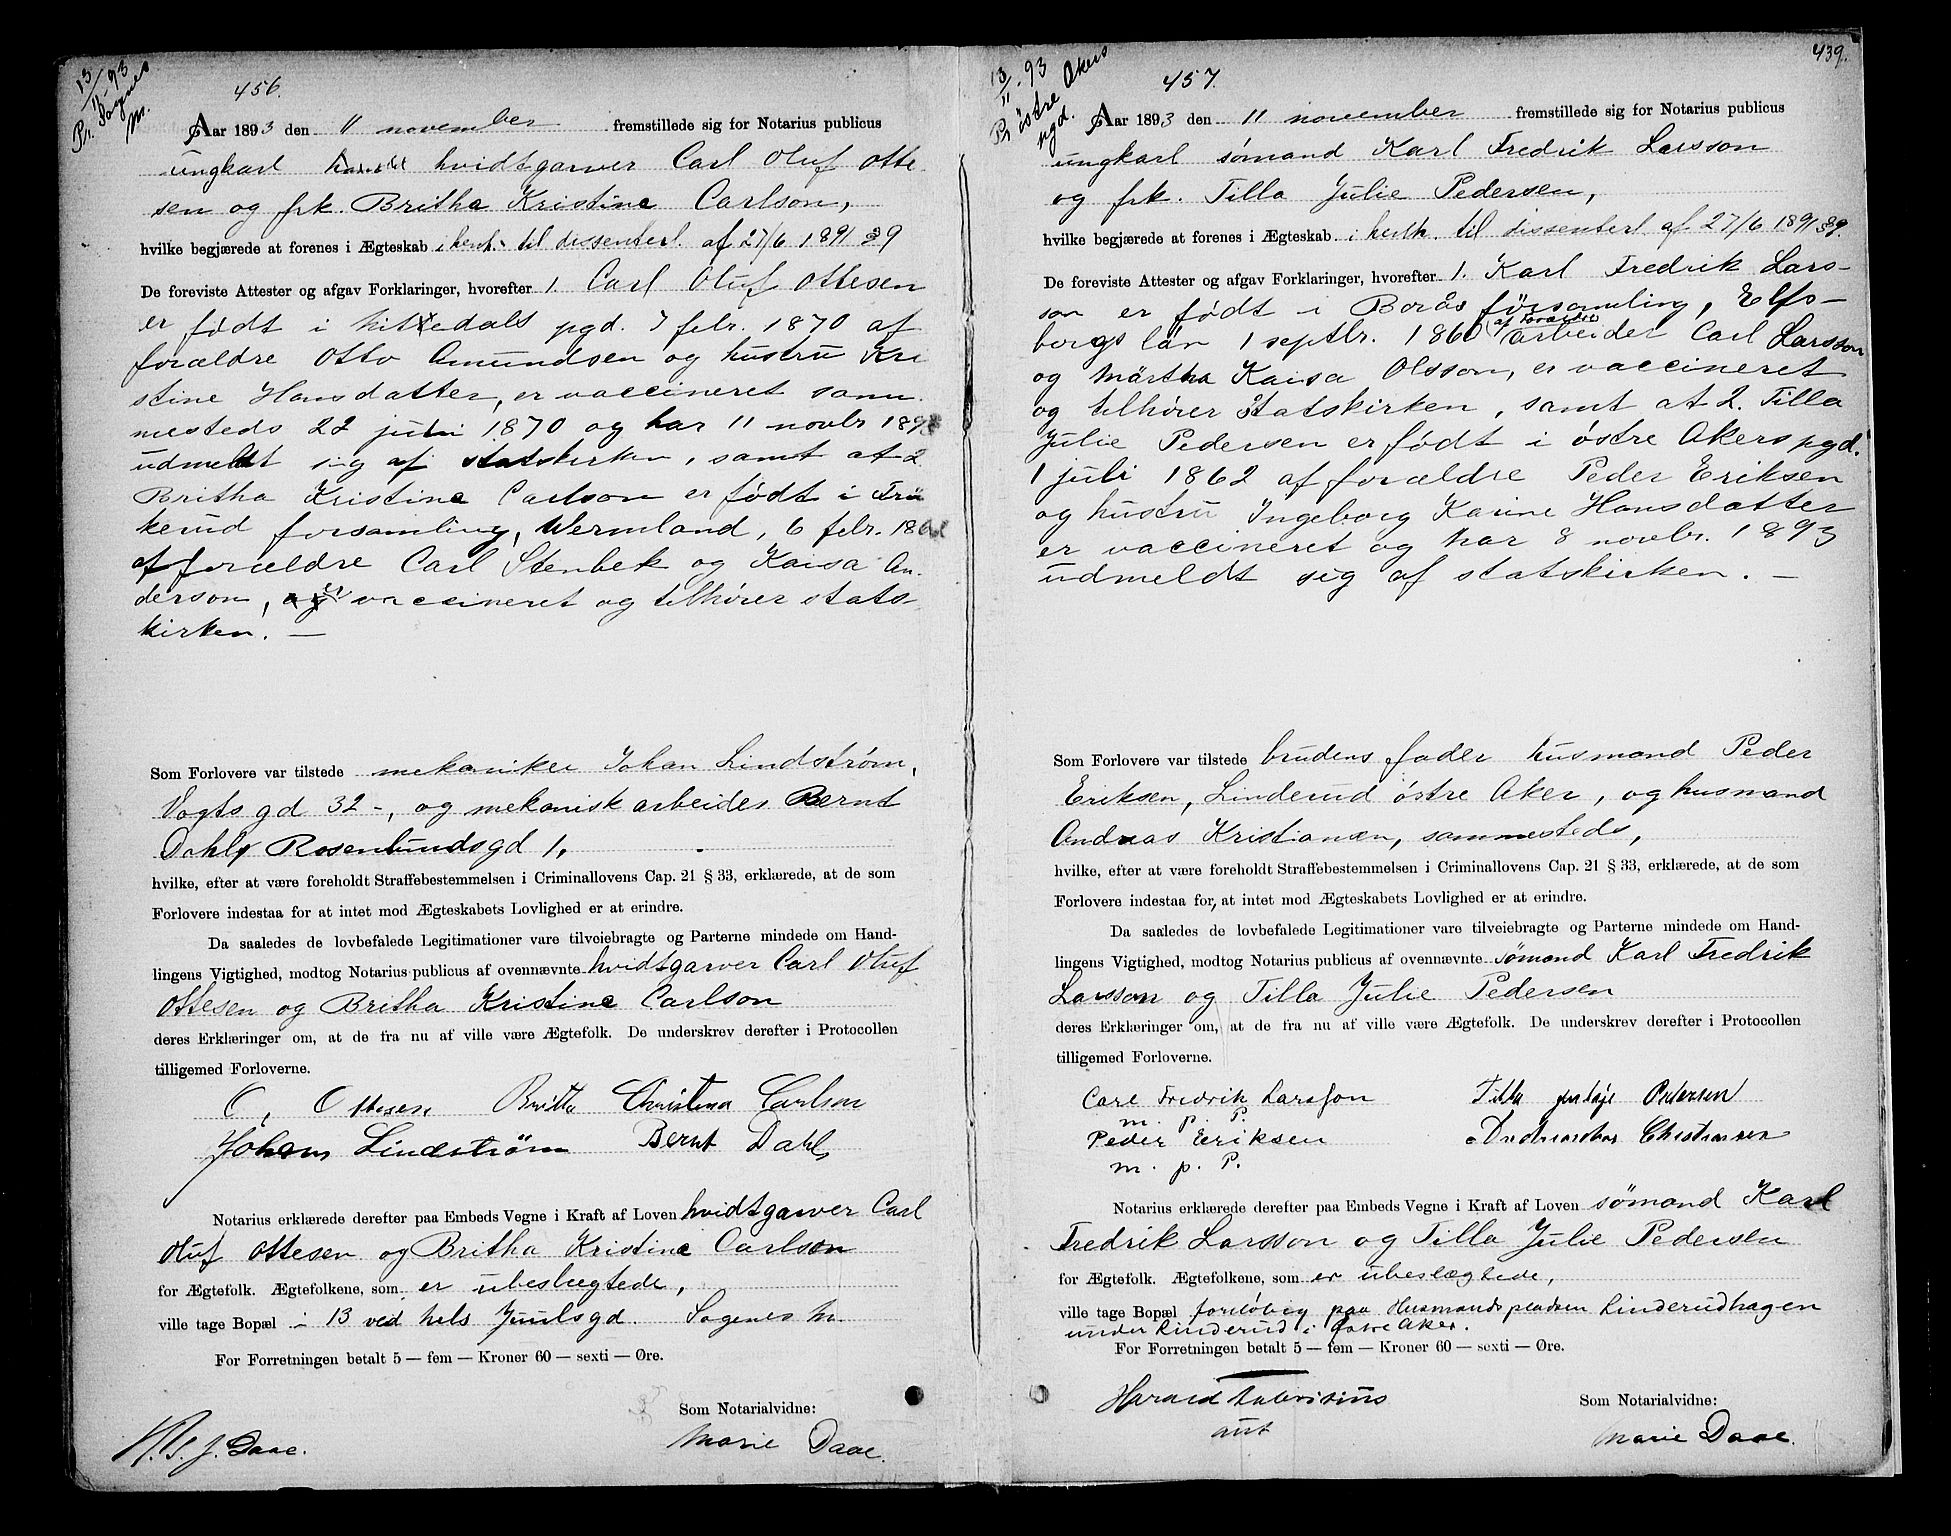 13/11-93
Pr. Sagenes
M.
456.
Aar 1893 den 11 november fremstillede sig for Notarius publicus
ungkarl hvidtgarver Carl Oluf Otte-
sen og frk. Britha Kristine Carlson,
hvilke begjærede at forenes i Ægteskab i henh. til dissenterl. af 27/6 1891 § 9
De foreviste Attester og afgav Forklaringer, hvorefter 1. Carl Oluf Ottesen
er født i hitterdals pgd. 7 febr. 1870 af
forældre Otto Amundsen og hustru Kri
stine Hansdatter, er vaccineret sam-
mesteds 22 juli 1870 og har 11 novbr 1893
udmeldt sig af statskirken, samt at 2
Britha Kristine Carlson er født i Frü
kerud forsamling, Wermland, 6 febr.
af forældre Carl Stenbek og Kaisa An-
derson, er vaccineret og tilhører stats-
kirken. —
Som Forlovere var tilstede mekaniker Johan Lindstrøm,
Vogts gd 32 -, og mekanisk arbeider Bernt
Dahl, Rosenlundsgd 1,
hvilke, efter at være foreholdt Straffebestemmelsen i Criminallovens Cap. 21 § 33, erklærede, at de som
Forlovere indestaa for at intet mod Ægteskabets Lovlighed er at erindre.
Da saaledes de lovbefalede Legitimationer vare tilveiebragte og Parterne mindede om Hand-
lingens Vigtighed, modtog Notarius publicus af ovennævnte hvidtgarver Carl Oluf
Ottesen og Britha Kristine Carlson
deres Erklæringer om, at de fra nu af ville være Ægtefolk. De underskrev derefter i Protocollen
tilligemed Forloverne.
C, Ottesen Britta Christina Carlson
Johan Lindström Bernt Dahl,
Notarius erklærede derefter paa Embeds Vegne i Kraft af Loven hvidtgarver Carl
Oluf Ottesen og Britha Kristine Carlson
for Ægtefolk. Ægtefolkene, som er ubeslægtede,
ville tage Bopæl i 13 ved hels Juulsgd. Sagenes M.
For Forretningen betalt 5 — fem — Kroner 60 — sexti — Øre.
Som Notarialvidne:
J. Daae. Marie Daae.
439.
13/11.93
Pr. østre Akers
pgd.
457.
Aar 1893 den 11 november fremstillede sig for Notarius publicus
ungkarl sømand Karl Fredrik Larsson
og frk. Tilla Julie Pedersen,
hvilke begjærede at forenes i Ægteskab i henh. til dissenterl. af 27/6 1891 § 9.
De foreviste Attester og afgav Forklaringer, hvorefter 1. Karl Fredrik Lars-
son er født i Borås församling, Elfs-
borgs län 1 septbr. 1860 af forældre arbeider Carl Larsson
og Märtha Kaisa Olsson, er vaccineret
og tilhører Statskirken, samt at 2. Tilla
Julie Pedersen er født i østre Akers pgd.
1 juli 1862 af forældre Peder Eriksen
og hustru Ingeborg Karine Hansdatter
er vaccineret og har 8 novbr. 1893
udmeldt sig af statskirken. —
Som Forlovere var tilstede brudens fader husmand Peder
Eriksen, Linderud østre Aker, og husmand
Andreas Kristiansen, sammesteds,
hvilke, efter at være foreholdt Straffebestemmelsen i Criminallovens Cap. 21 § 33, erklærede, at de som
Forlovere indestaa for, at intet mod Ægteskabets Lovlighed er at erindre.
Da saaledes de lovbefalede Legitimationer vare tilveiebragte og Parterne mindede om Hand-
lingens Vigtighed, modtog Notarius publicus af ovennævnte sømand Karl Fredrik
Larsson og Tilla Julie Pedersen
deres Erklæringer om, at de fra nu af ville være Ægtefolk. De underskrev derefter i Protocollen
tilligemed Forloverne.
Carl Fredrik Larsson Tilla Pedersen
m. p. P.
Peder Eriksen Christiansen
m. p. P.
Notarius erklærede derefter paa Embeds Vegne i Kraft af Loven sømand Karl
Fredrik Larsson og Tilla Julie Pedersen
for Ægtefolk. Ægtefolkene, som er ubeslægtede,
ville tage Bopæl foreløbig paa Husmandspladsen Linderudhagen
under Linderud i østre Aker.
For Forretningen betalt 5 — fem — Kroner 60 — sexti — Øre.
Som Notarialvidne:
Harald
aut Marie Daae.